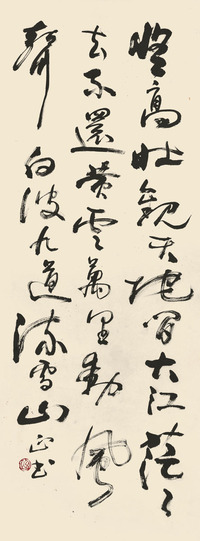 登高壯觀天地間大江茫〻
去不還黃雲萬里動風
聲白波九道流雪山